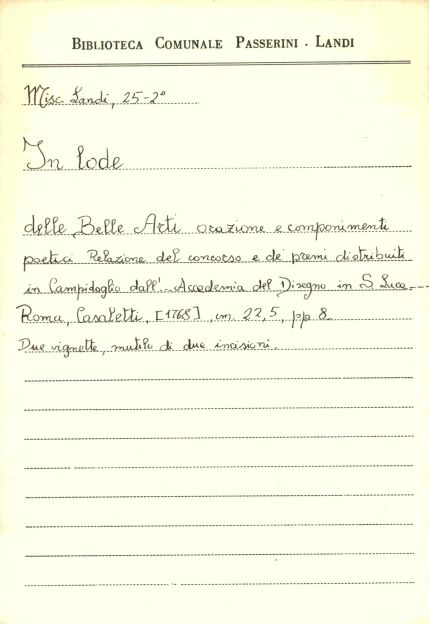 BIBLIOTECA COMUNALE PASSERINI - LANDI
Misc. Landi, 25-2°
In lode
delle Belle Arti orazione e componimenti
poetici Relazione del concorso e de' premi distribuiti
in Campidoglio dall'--Accademia del Disegno in S. Luca--
Roma, Casaletti, [1768], cm. 22,5, pp. 8.
Due vignette, mutilo di due incisioni.